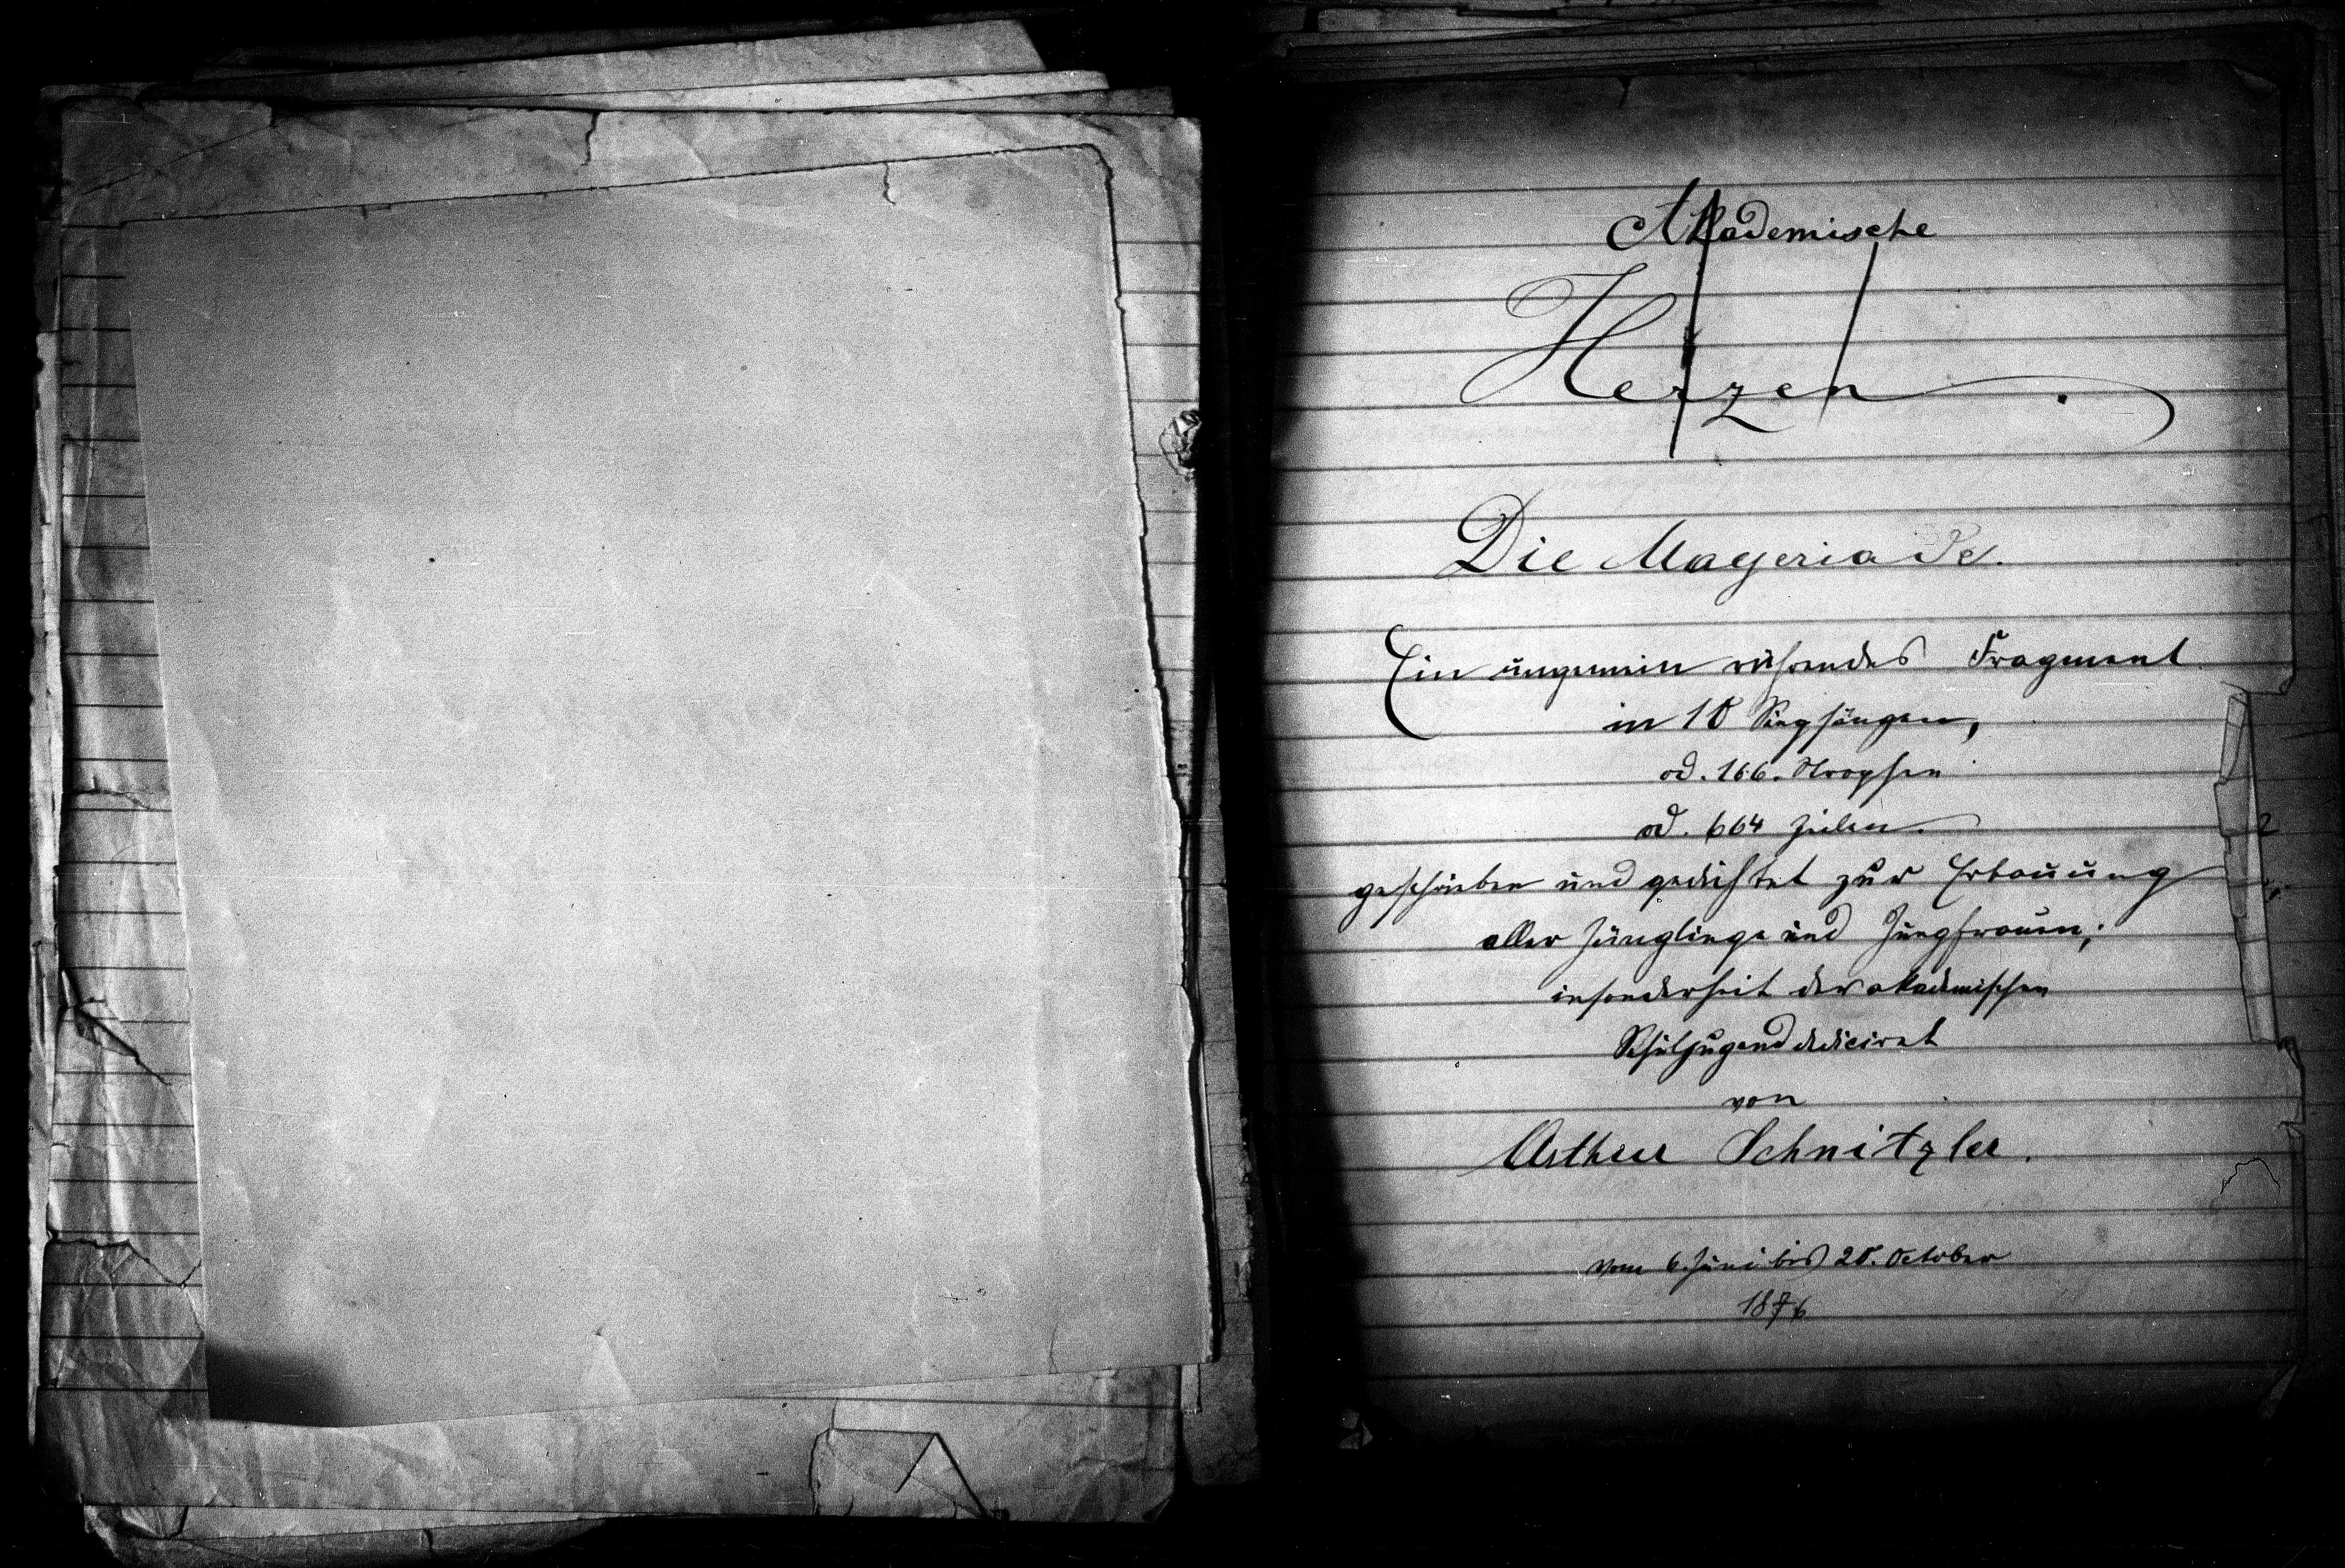 Akademische
Herzen.
Die Mayeriade.
Ein ungemein rührendes Fragment
in 10 Singsängen,
od. 166. Strophen
od. 664 Zeilen.
geschrieben und gedichtet zur Erbauung
aller Jünglinge und Jungfrauen;
insonderheit der akademischen
Schuljugend dedicirt
von
Arthur Schnitzler.
vom 6. Juni bis 20. October
1876